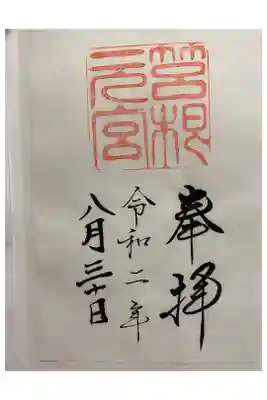 筥根
元宮
奉拝
令和二年
八月三十日